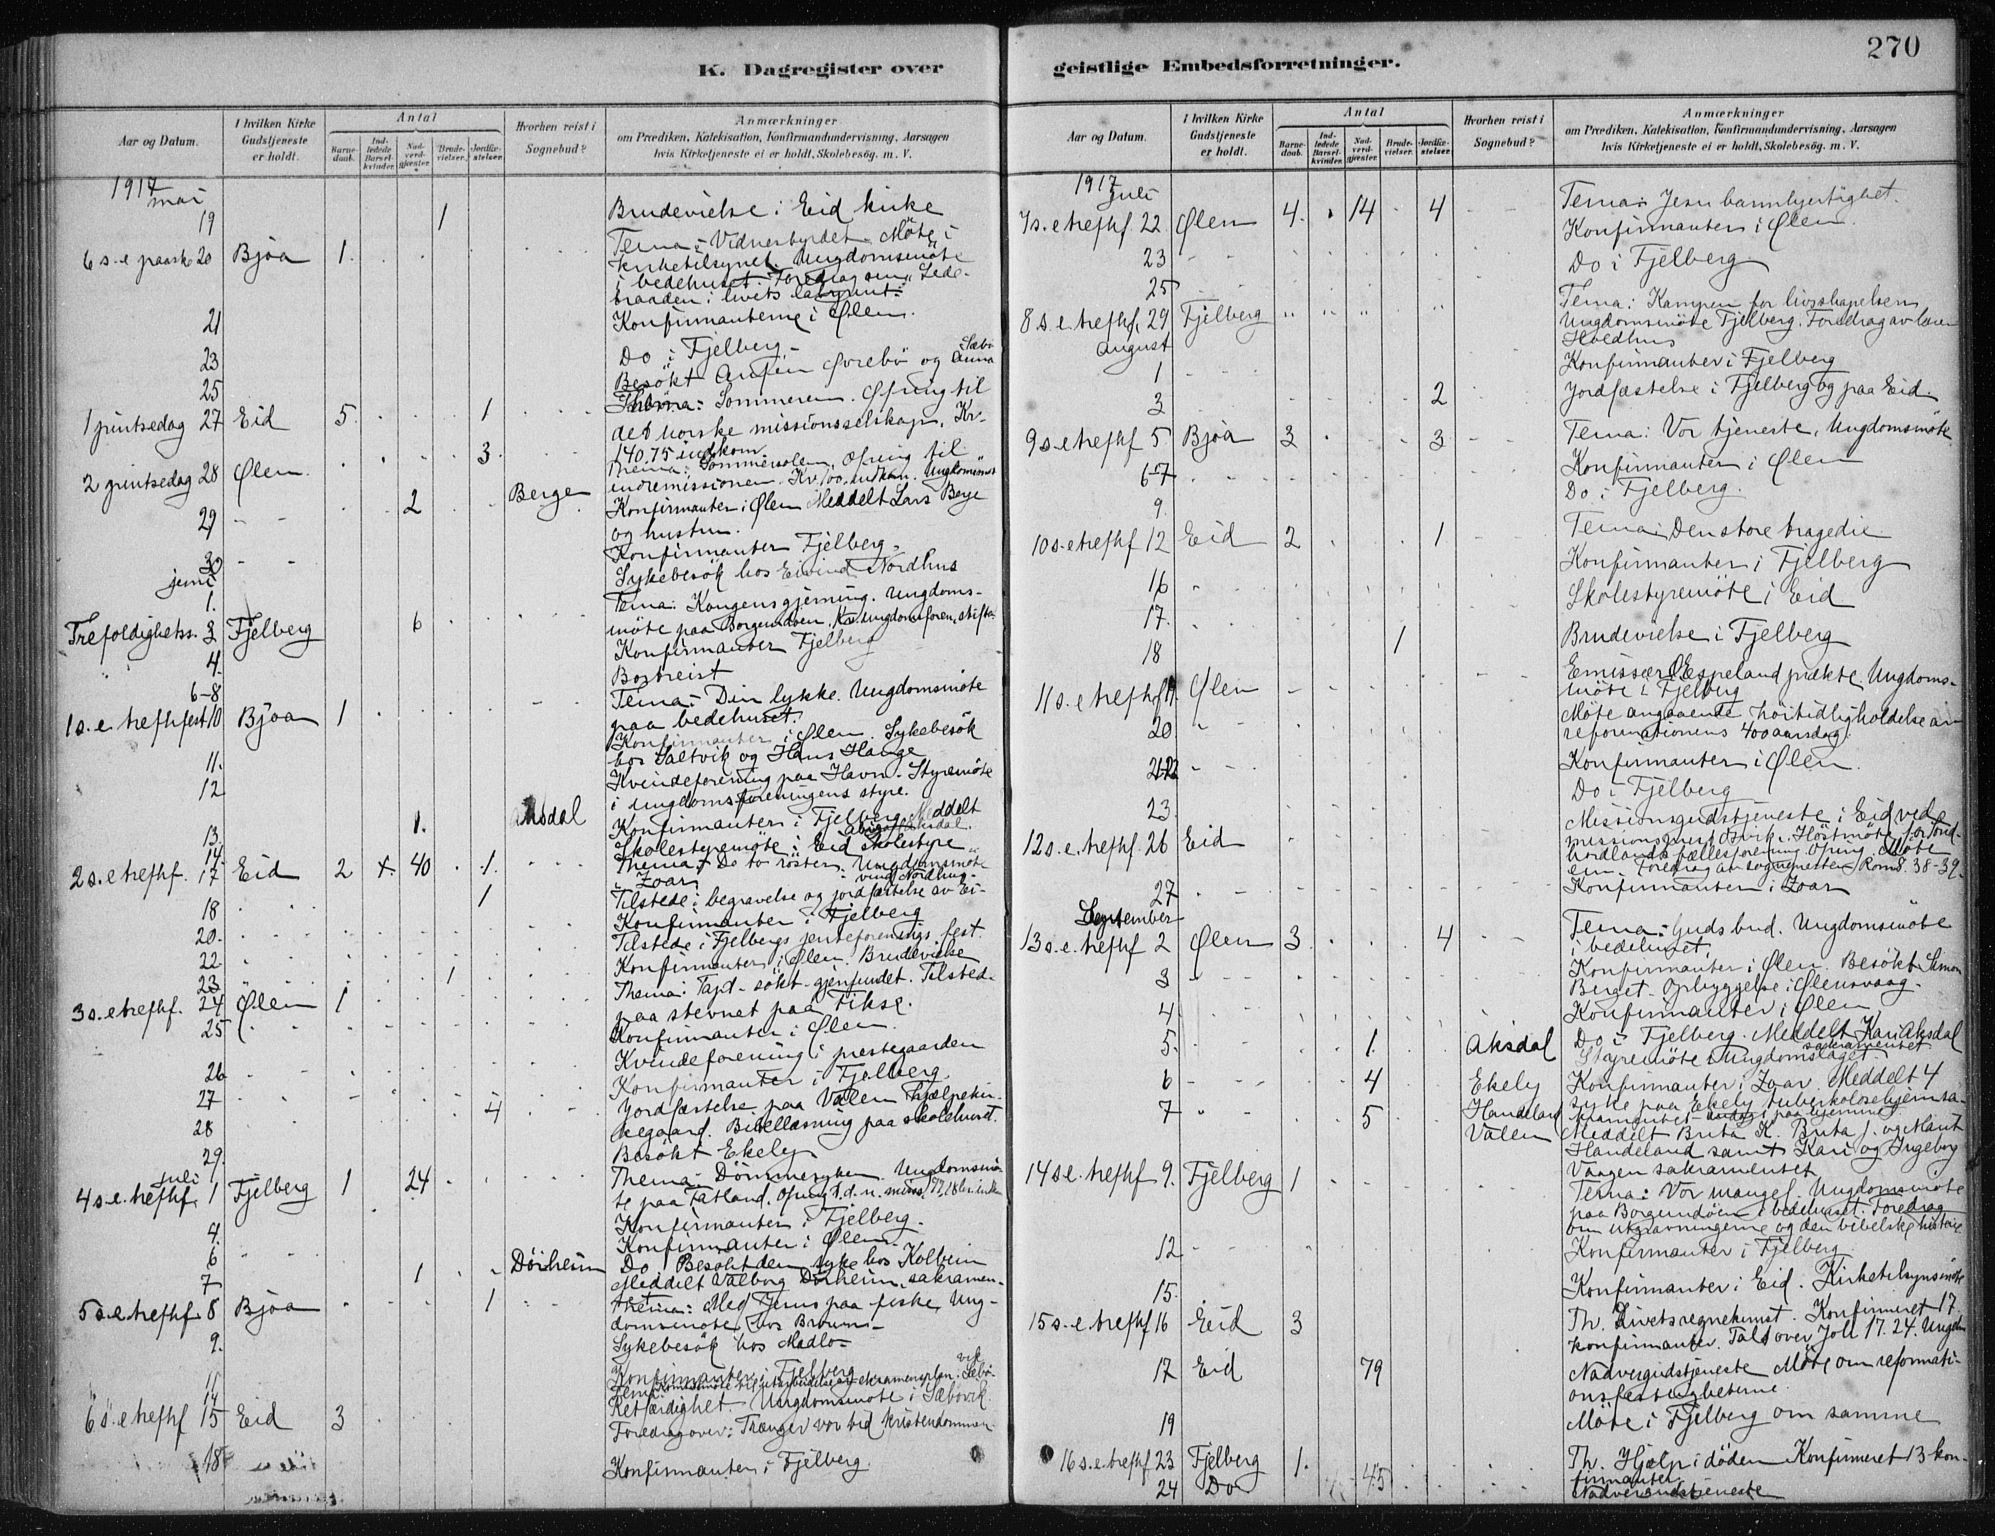 270
K. Dagregister over
geistlige Embedsforretninger.
Aar og Datum.
I hvilken Kirke Gudstjeneste er holdt.
Antal
Barnedaab.
Indledede Barselkvinder.
Nadverdgjester.
Brudevielser.
Jordfæstelser.
Hvorhen reist i Sognebud?
Anmærkninger
om Prædiken, Katekisation, Konfirmandundervisning, Aarsagen
hvis Kirketjeneste ei er holdt, Skolebesög. m. V.
1917
mai
19 1 Brudevielse i Eid kirke
6 s. e paaske 20 Bjoa 1. Tema: Vidnesbyrdet. Möte i
kirketilsynet. Ungdomsmöte
i bedehuset. Foredrag om "Lede-
traaden i livets labyrint."
21 Konfirmanterne i Ølen.
23 Do i Fjelberg
25 Besökt Øvrebö og Anna
1 pintsedag 27 Eid 5 1 Thema: Sommeren. Ofring til
det norske missionsselskap. Kr.
140.75 indkom.
2 pintsedag 28 Ølen. 3 Thema: Sommersolen. Ofring til
indremissionen. Kr. 100. indkom. Ungdomsmöt
29 2 Berge Konfirmanter i Ølen Meddelt Lars Berge
og hustru.
30 Konfirmanter Fjelberg.
juni
1. Sykebesök hos Eivind Nordhus
Trefoldighetss. 3 Fjelberg 6 Tema: Kongens gjerning. Ungdoms-
möte paa Borgundöen.
4. Konfirmanter Fjelberg
6-8 Bortreist
1 s. e. trefh fest 10 Bjoa 1 Tema: Din lykke. Ungdomsmöte
paa bedehuset.
11. Konfirmanter i Ølen. Sykebesök
hos Saltvik og Hans Hauge
12 Kvindeforening paa Havn. Styremöte
i ungdomsforeningens styre.
13. 1. Aksdal Konfirmanter i Fjelberg Meddelt
Aksdal.
14. Skolestyremöte i Eid skolestyre
2 s. e trefhf. 17 Eid 2 40 1. Thema: De to röster. Ungdomsmöte
i Zoar
18 1 Tilstede i begravelse og jordfæstelse av Ei-
vind Nordhus.
20. Konfirmanter i Fjelberg
22. Tilstede i Fjelbergs jenteforenings fest
23 1 Konfirmanter i Ølen Brudevielse
3 s. e trefhf. 24 Ølen 1 Thema: Tapt - sökt - gjenfundet. Tilsted-
paa stevnet paa Tikse.
25 Konfirmanter i Ølen.
Kvindeforening i prestegaarden
26 Konfirmanter i Fjelberg
27 4 Jordfæstelse paa Valen hjælpekir-
kegaard. Bibellæsning paa skolehuset.
28
29. Besökt Ekely
juli
4 s. e. trefhf. 1 Fjelberg 1 24 Thema: Dömmesyken. Ungdomsmö-
te paa Tatland. Ofring t. d. n. miss.
4. Konfirmanter i Fjelberg.
6 Konfirmanter i Ølen.
7 1 Dörheim Do Besökt den syke hos Kolbein
Meddelt Valborg Dörheim sakramen-
5 s e trefhf 8 Bjoa 1 Thema: Med Jesus paa fiske. Ung-
domsmöte hos Brown
9. Sykebesök hos Madlo
11 Konfirmanter i Fjelberg
14
6 s. e trefhf 15 Eid 3 Tema: Retfærdighet. Ungdomsmöte i Sæbövik
Foredrag over: Trænger vor tid kristendommen
18 Konfirmanter i Fjelberg.
Aar og Datum.
I hvilken Kirke Gudstjeneste er holdt.
Antal
Barnedaab.
Indledede Barselkvinder.
Nadverdgjester.
Brudevielser.
Jordfæstelser.
Hvorhen reist i Sognebud?
Anmærkninger
om Prædiken, Katekisation, Konfirmandundervisning, Aarsagen
hvis Kirketjeneste ei er holdt, Skolebesög. m. V.
1917
Juli
7 s. e trefhf. 22 Ølen 4. 14 4 Tema: Jesu barmhjertighet.
Konfirmanter i Ølen.
23
25 Do i Fjelberg
8 s. e. trefhf. 29 Fjelberg Tema: Kampen for livsskapelsen
Ungdomsmöte Fjelberg. Foredrag av lærer
august
1 Konfirmanter i Fjelberg
3 2 Jordfæstelse i Fjelberg og paa Eid.
9 s. e trefhf 5 Bjoa 3 3 Tema: Vor tjeneste. Ungdomsmöte
6-7 Konfirmanter i Ølen
9. Do i Fjelberg.
10 s. e trefhf 12 Eid 2 1 Tema: Den store tragedie
16 Konfirmanter i Fjelberg
17. Skolestyremöte i Eid
18 1 Brudevielse i Fjelberg
11 s. e trefhf 19 Ølen Emissær Espeland prækte Ungdoms-
möte i Fjelberg
20 Möte angaaende höitidligholdelse av
reformationens 400 aarsdag.
Konfirmanter i Ølen
23 Do i Fjelberg
12 s. e. trefhf. 26 Eid Missionsgudstjeneste i Eid ved
missionsprest Höstmöte for Sönd-
hordlands fællesforening Ofring. Möte
Foredrag av sogneprester Rom 8. 38-39.
27 Konfirmanter i Zoar
September
13 s. e. trefhf 2 Ølen 3 4 Tema: Guds bud. Ungdomsmöte
i bedehuset.
3 Konfirmanter i Ølen. Besökt Simon
Berget. Opbyggelse i Ølensvaag.
4 Konfirmanter i Ølen
5. 1. Aksdal Do i Fjelberg. Meddelt Kari Aksdal
sakramentet
Styremöte i Ungdomslaget
6 4 Ekely Konfirmanter i Zoar. Meddelt 4
syke paa Ekely tuberkolosehjem sa-
kramentet
7 5 Handeland Valen Meddelt Brita K. Brita J. og Marit
Handeland samt Kari og Ingeborg
Vaagen sakramentet
14 s e. trefhf 9. Fjelberg 1 Tema: Vor mangel. Ungdomsmöte
paa Borgundöen i bedehuset. Foredrag
om utgravningerne og den bibelske historie
12 Konfirmanter i Fjelberg
15. Konfirmanter i Eid. Kirketilsynsmöte
15 s. e trefhf 16 Eid 3 Th. Livets regnekunst. Konfirmeret 17.
konfirmanter. Talt over Joh 17. 24. Ungdm
17 Eid 79 Nadvergudstjeneste Möte om reformati-
onsfestligheterne
19 Möte i Fjelberg om samme
16 s. e. trefhf 23 Fjelberg 1. Th. Hjælp i döden Konfirmeret 13 kon-
firmanter
24 Do 45 Nadvergudstjeneste